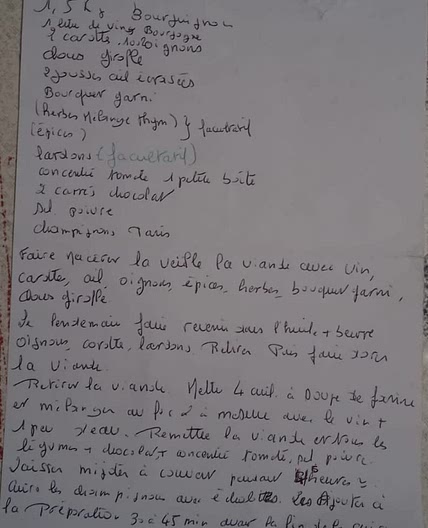 1,5 kg Bourguignon
1 litre de vin Bourgogne
2 carottes oignons
clous girofle
2 gousses ail écrasées
Bouquet garni
(herbes mélange thym) } facultatif
(épices)
lardons (facultatif)
concentré tomate 1 petite boîte
2 carrés chocolat
sel poivre
champignons Paris
Faire macérer la veille la viande avec vin,
carottes, ail oignons, épices, herbes, bouquet garni,
clous girofle
Le lendemain faire revenir dans l'huile + beurre
oignons, carotte, lardons. Retirer Puis faire dorer
la viande.
Retirer la viande. Mettre 4 cuil. à soupe de farine
et mélanger au fur à mesure avec le vin +
1 peu d'eau. Remettre la viande et tous les
légumes + chocolat + concentré tomate, sel poivre.
Laisser mijoter à couvert pendant heures
cuire les champignons avec échalotes. Les Ajouter à
la Préparation 30 à 45 min avant la fin de